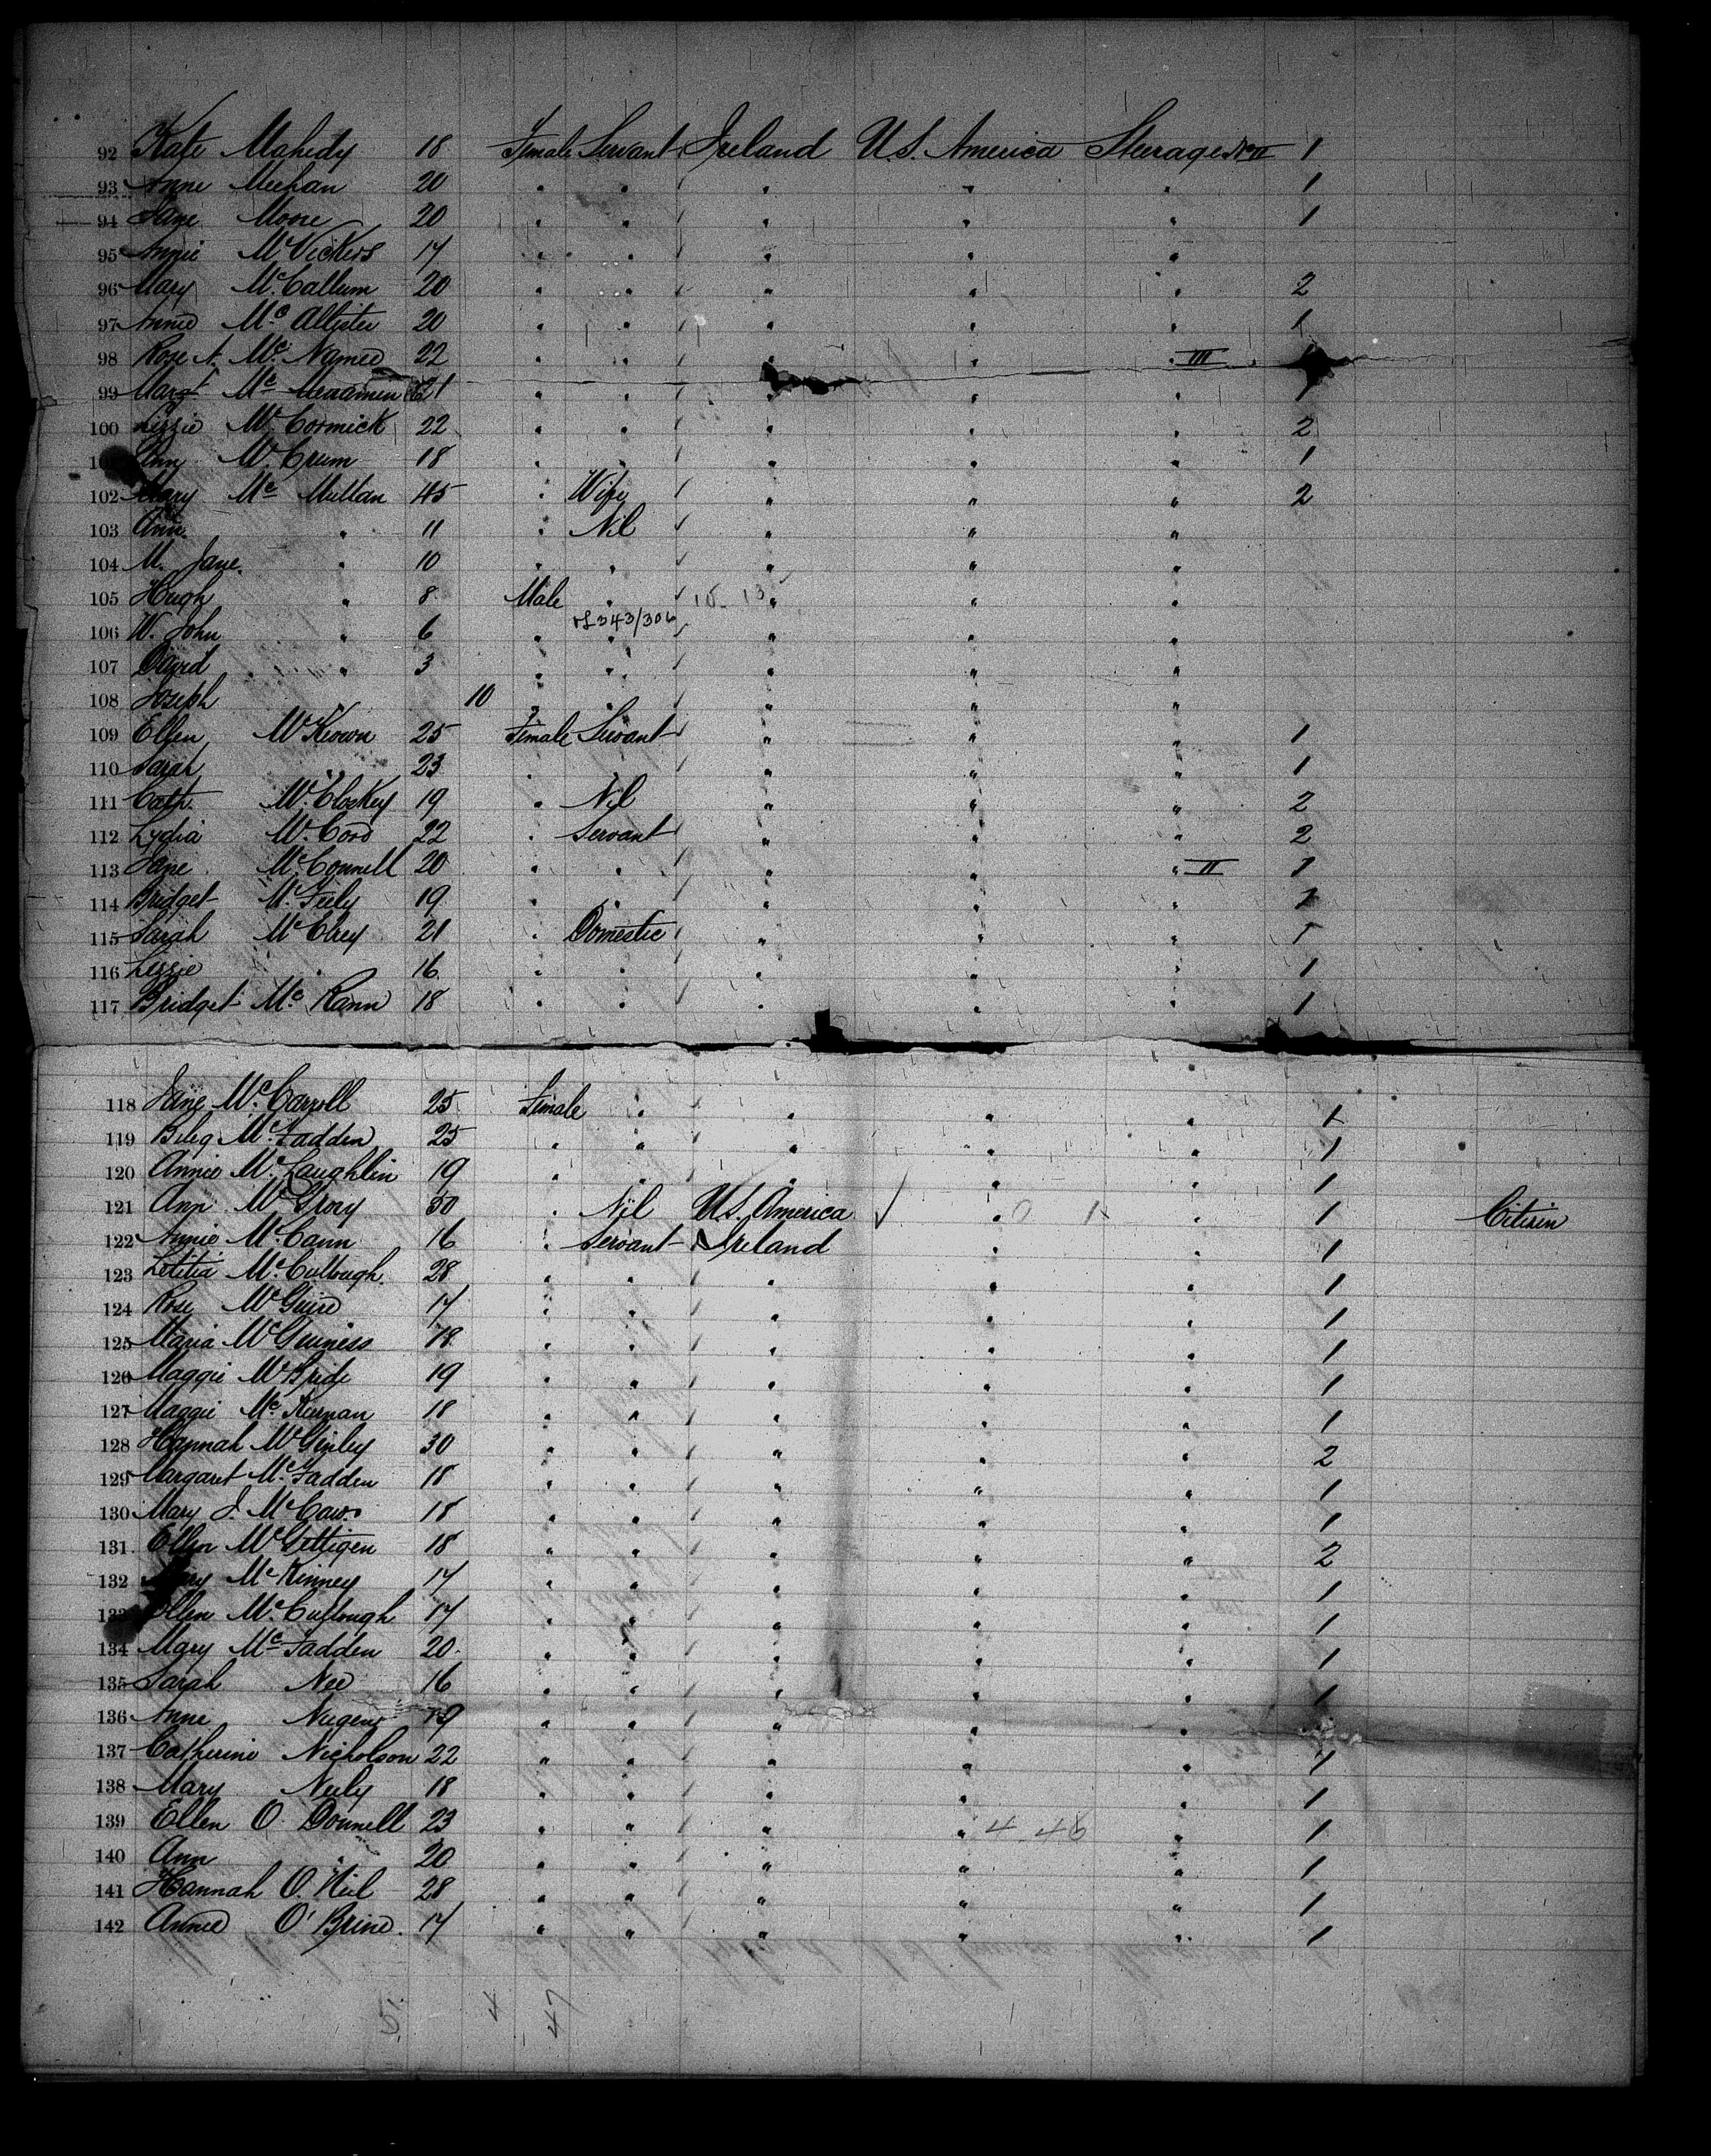 92 Kate Mahedy 18 Female Servant Ireland U.S. America Steerage No II 1
93 Anne Meehan 20 " " " " " 1
94 Jane Moore 20 " " " " " 1
95 Annie McVickers 17 " " " " "
96 Mary McCallum 20 " " " " " 2
97 Annie McAllister 20 " " " " " 1
98 Rose A. McNamee 22 " " " " " III
99 Margt Mc 21 " " " " " 1
100 Lizzie McCormick 22 " " " " " 2
Ann McCrum 18 " " " " " 1
102 Mary McMullan 45 " Wife " " " 2
103 Ann " 11 " Nil " " "
104 M. Jane " 10 " " " " "
105 Hugh " 8 Male " 15 13 " " "
106 W. John " 6 " 343/306 " " " "
107 David " 3 " " " " "
108 Joseph " 10 " " " " "
109 Ellen McKeown 25 Female Servant " " " 1
110 Sarah " 23 " " " " " 1
111 Cath. McCloskey 19 " Nil " " " 2
112 Lydia McCord 22 " Servant " " " 2
113 Jane McConnell 20 " " " " " II 1
114 Bridget McFeely 19 " " " " " 1
115 Sarah McElrey 21 " Domestic " " " 1
116 Lizzie " 16 " " " " " 1
117 Bridget McKann 18 " " " " " 1
118 Jane McCarroll 25 Female " " " " 1
119 McFadden 25 " " " " " 1
120 Annie McLaughlin 19 " " " " " 1
121 Ann McGrory 50 " Nil U.S. America " 0 1 " 1 Citizen
122 Annie McCann 16 " Servant Ireland " " 1
123 Letitia McCullough 28 " " " " " 1
124 Rose McGuire 17 " " " " " 1
125 Maria McGuiness 18 " " " " " 1
126 Maggie McBride 19 " " " " " 1
127 Maggie McKiernan 18 " " " " " 1
128 Hannah McGinley 30 " " " " " 2
129 Margaret McFadden 18 " " " " " 1
130 Mary J. McCaw 18 " " " " " 1
131 Ellen McGettigen 18 " " " " " 2
132 Mary McKinney 17 " " " " " 1
133 Ellen McCullough 17 " " " " " 1
134 Mary McFadden 20 " " " " " 1
135 Sarah Nee 16 " " " " " 1
136 Anne Nugent 19 " " " " "
137 Catherine Nicholson 22 " " " " " 1
138 Mary Neely 18 " " " " " 1
139 Ellen O'Donnell 23 " " " " 4 46 " 1
140 Ann " 20 " " " " " 1
141 Hannah O'Neil 28 " " " " " 1
142 Annie O'Brine 17 " " " " " 1
51 4 47